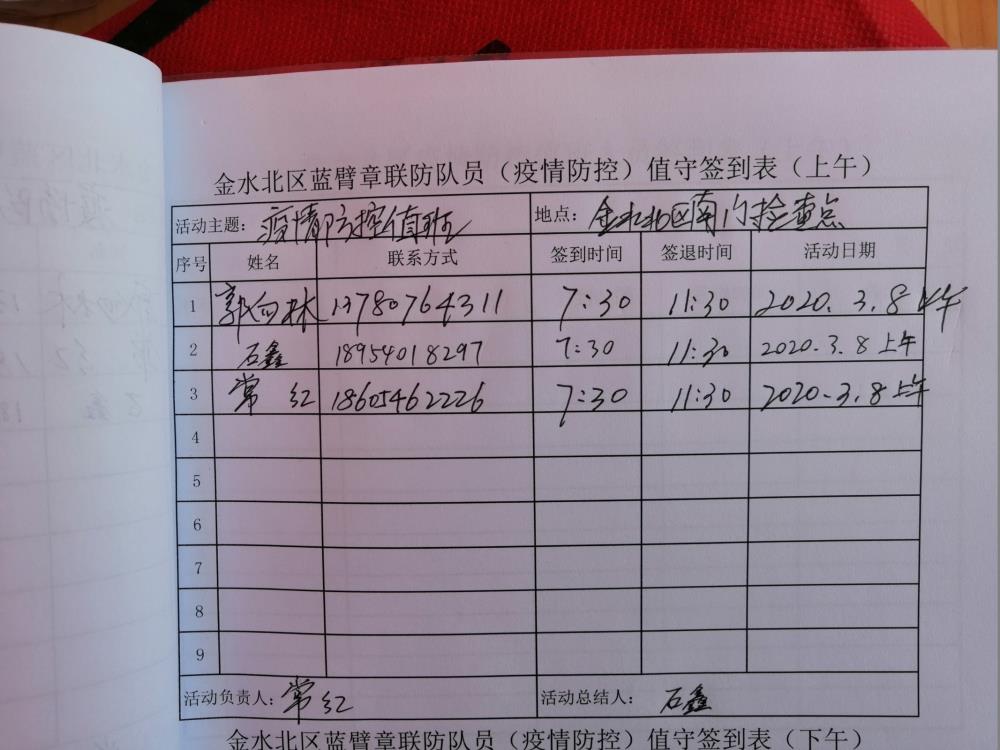 金水北区蓝臂章联防队员（疫情防控）值守签到表（上午）
活动主题：疫情防控值班 地点：金水北区南门检查点
序号 姓名 联系方式 签到时间 签退时间 活动日期
1 郭向林 13780764311 7:30 11:30 2020.3.8 上午
2 石鑫 18954018297 7:30 11:30 2020.3.8 上午
3 常红 18605462226 7:30 11:30 2020.3.8 上午
4
5
6
7
8
9
活动负责人：常红 活动总结人：石鑫
金水北区蓝臂章联防队员（疫情防控）值守签到表（下午）